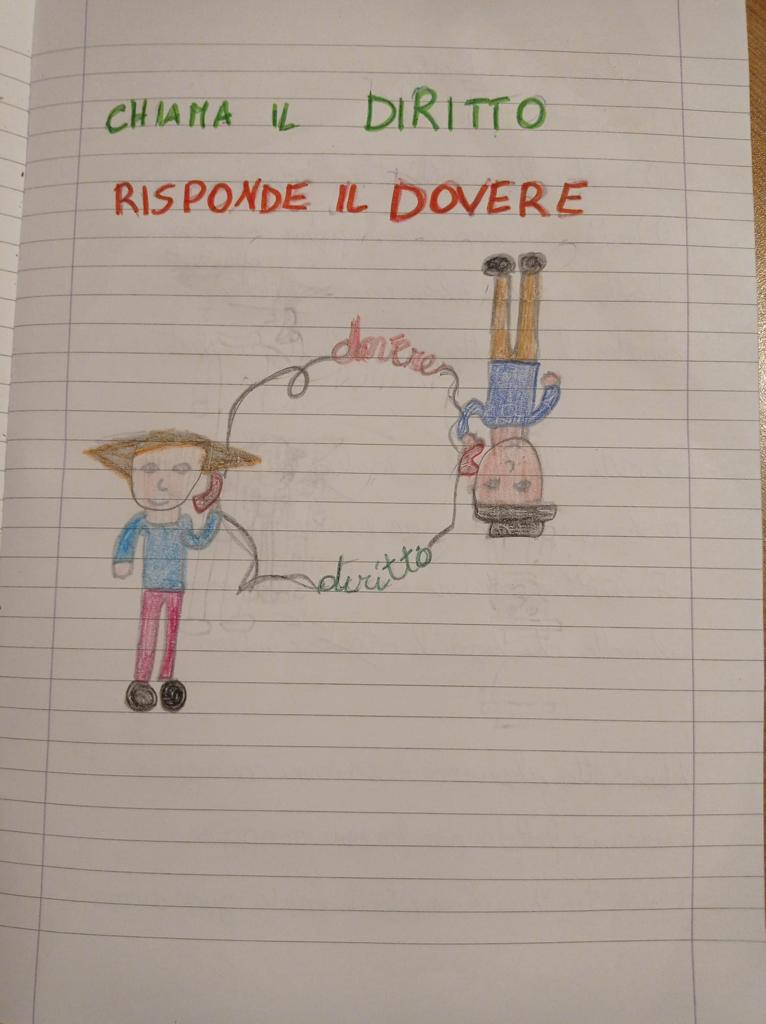 CHIAMA IL DIRITTO
RISPONDE IL DOVERE
dovere
diritto